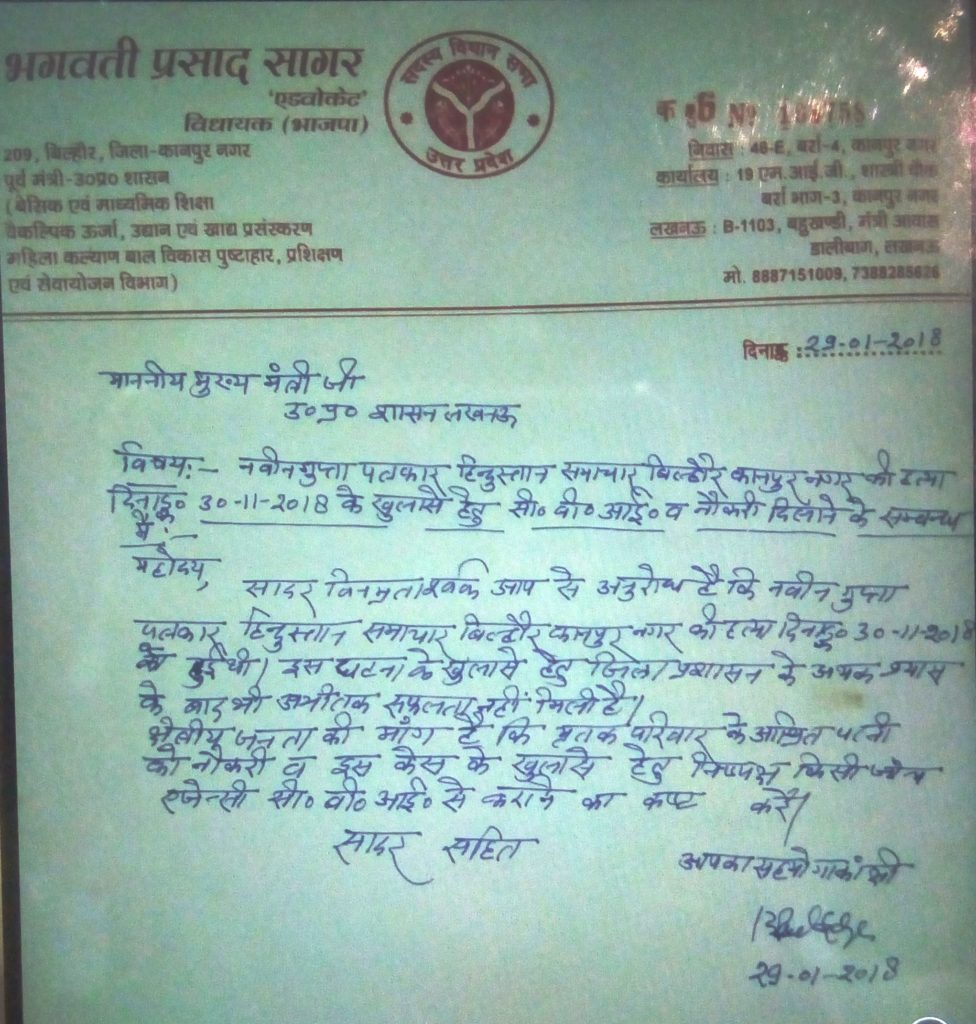 भगवती प्रसाद सागर
'एडवोकेट'
विधायक (भाजपा)
209, बिल्हौर, जिला-कानपुर नगर
पूर्व मंत्री-उ०प्र० शासन
(बेसिक एवं माध्यमिक शिक्षा
वैकल्पिक ऊर्जा, उद्यान एवं खाद्य प्रसंस्करण
महिला कल्याण बाल विकास पुष्टाहार, प्रशिक्षण
एवं सेवायोजन विभाग)
सदस्य विधान सभा
उत्तर प्रदेश
क 6 No
निवास : 46-E, बर्रा-4, कानपुर नगर
कार्यालय : 19 एम.आई.जी., शास्त्री चौक
बर्रा भाग-3, कानपुर नगर
लखनऊ : B-1103, बहुखण्डी, मंत्री आवास
डालीबाग, लखनऊ
मो. 8887151009, 7388285626
दिनांक : 29-01-2018
माननीय मुख्य मंत्री जी
उ०प्र० शासन लखनऊ
विषय:- नवीन गुप्ता पत्रकार हिन्दुस्तान समाचार बिल्हौर कानपुर नगर की हत्या
दिनाङ्क 30-11-2018 के खुलासे हेतु सी० वी० आई० व नौकरी दिलाने के सम्बन्ध
में:-
महोदय,
सादर विनम्रतापूर्वक आप से अनुरोध है कि नवीन गुप्ता
पत्रकार हिन्दुस्तान समाचार बिल्हौर कानपुर नगर की हत्या दिनाङ्क 30-11-2018
को हुई थी। इस घटना के खुलासे हेतु जिला प्रशासन के अथक प्रयास
के बाद भी अभीतक सफलता नहीं मिली है।
क्षेत्रीय जनता की माँग है कि मृतक परिवार के आश्रित पत्नी
को नौकरी व इस केस के खुलासे हेतु निष्पक्ष किसी
एजेन्सी सी० वी० आई० से कराने का कष्ट करें।
सादर सहित
आपका सहयोगाकांक्षी
29-01-2018